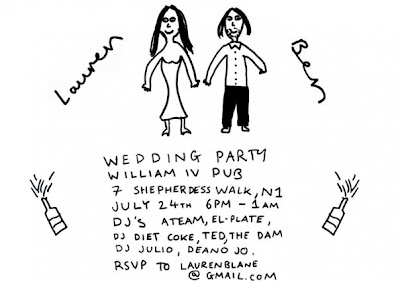 Lauren
Ben
WEDDING PARTY
WILLIAM IV PUB
7 SHEPHERDESS WALK, N1
JULY 24TH 6PM - 1AM
DJ'S ATEAM, EL-PLATE,
DJ DIET COKE, TED, THE DAM
DJ JULIO, DEANO JO.
RSVP TO LAURENBLANE
@GMAIL.COM